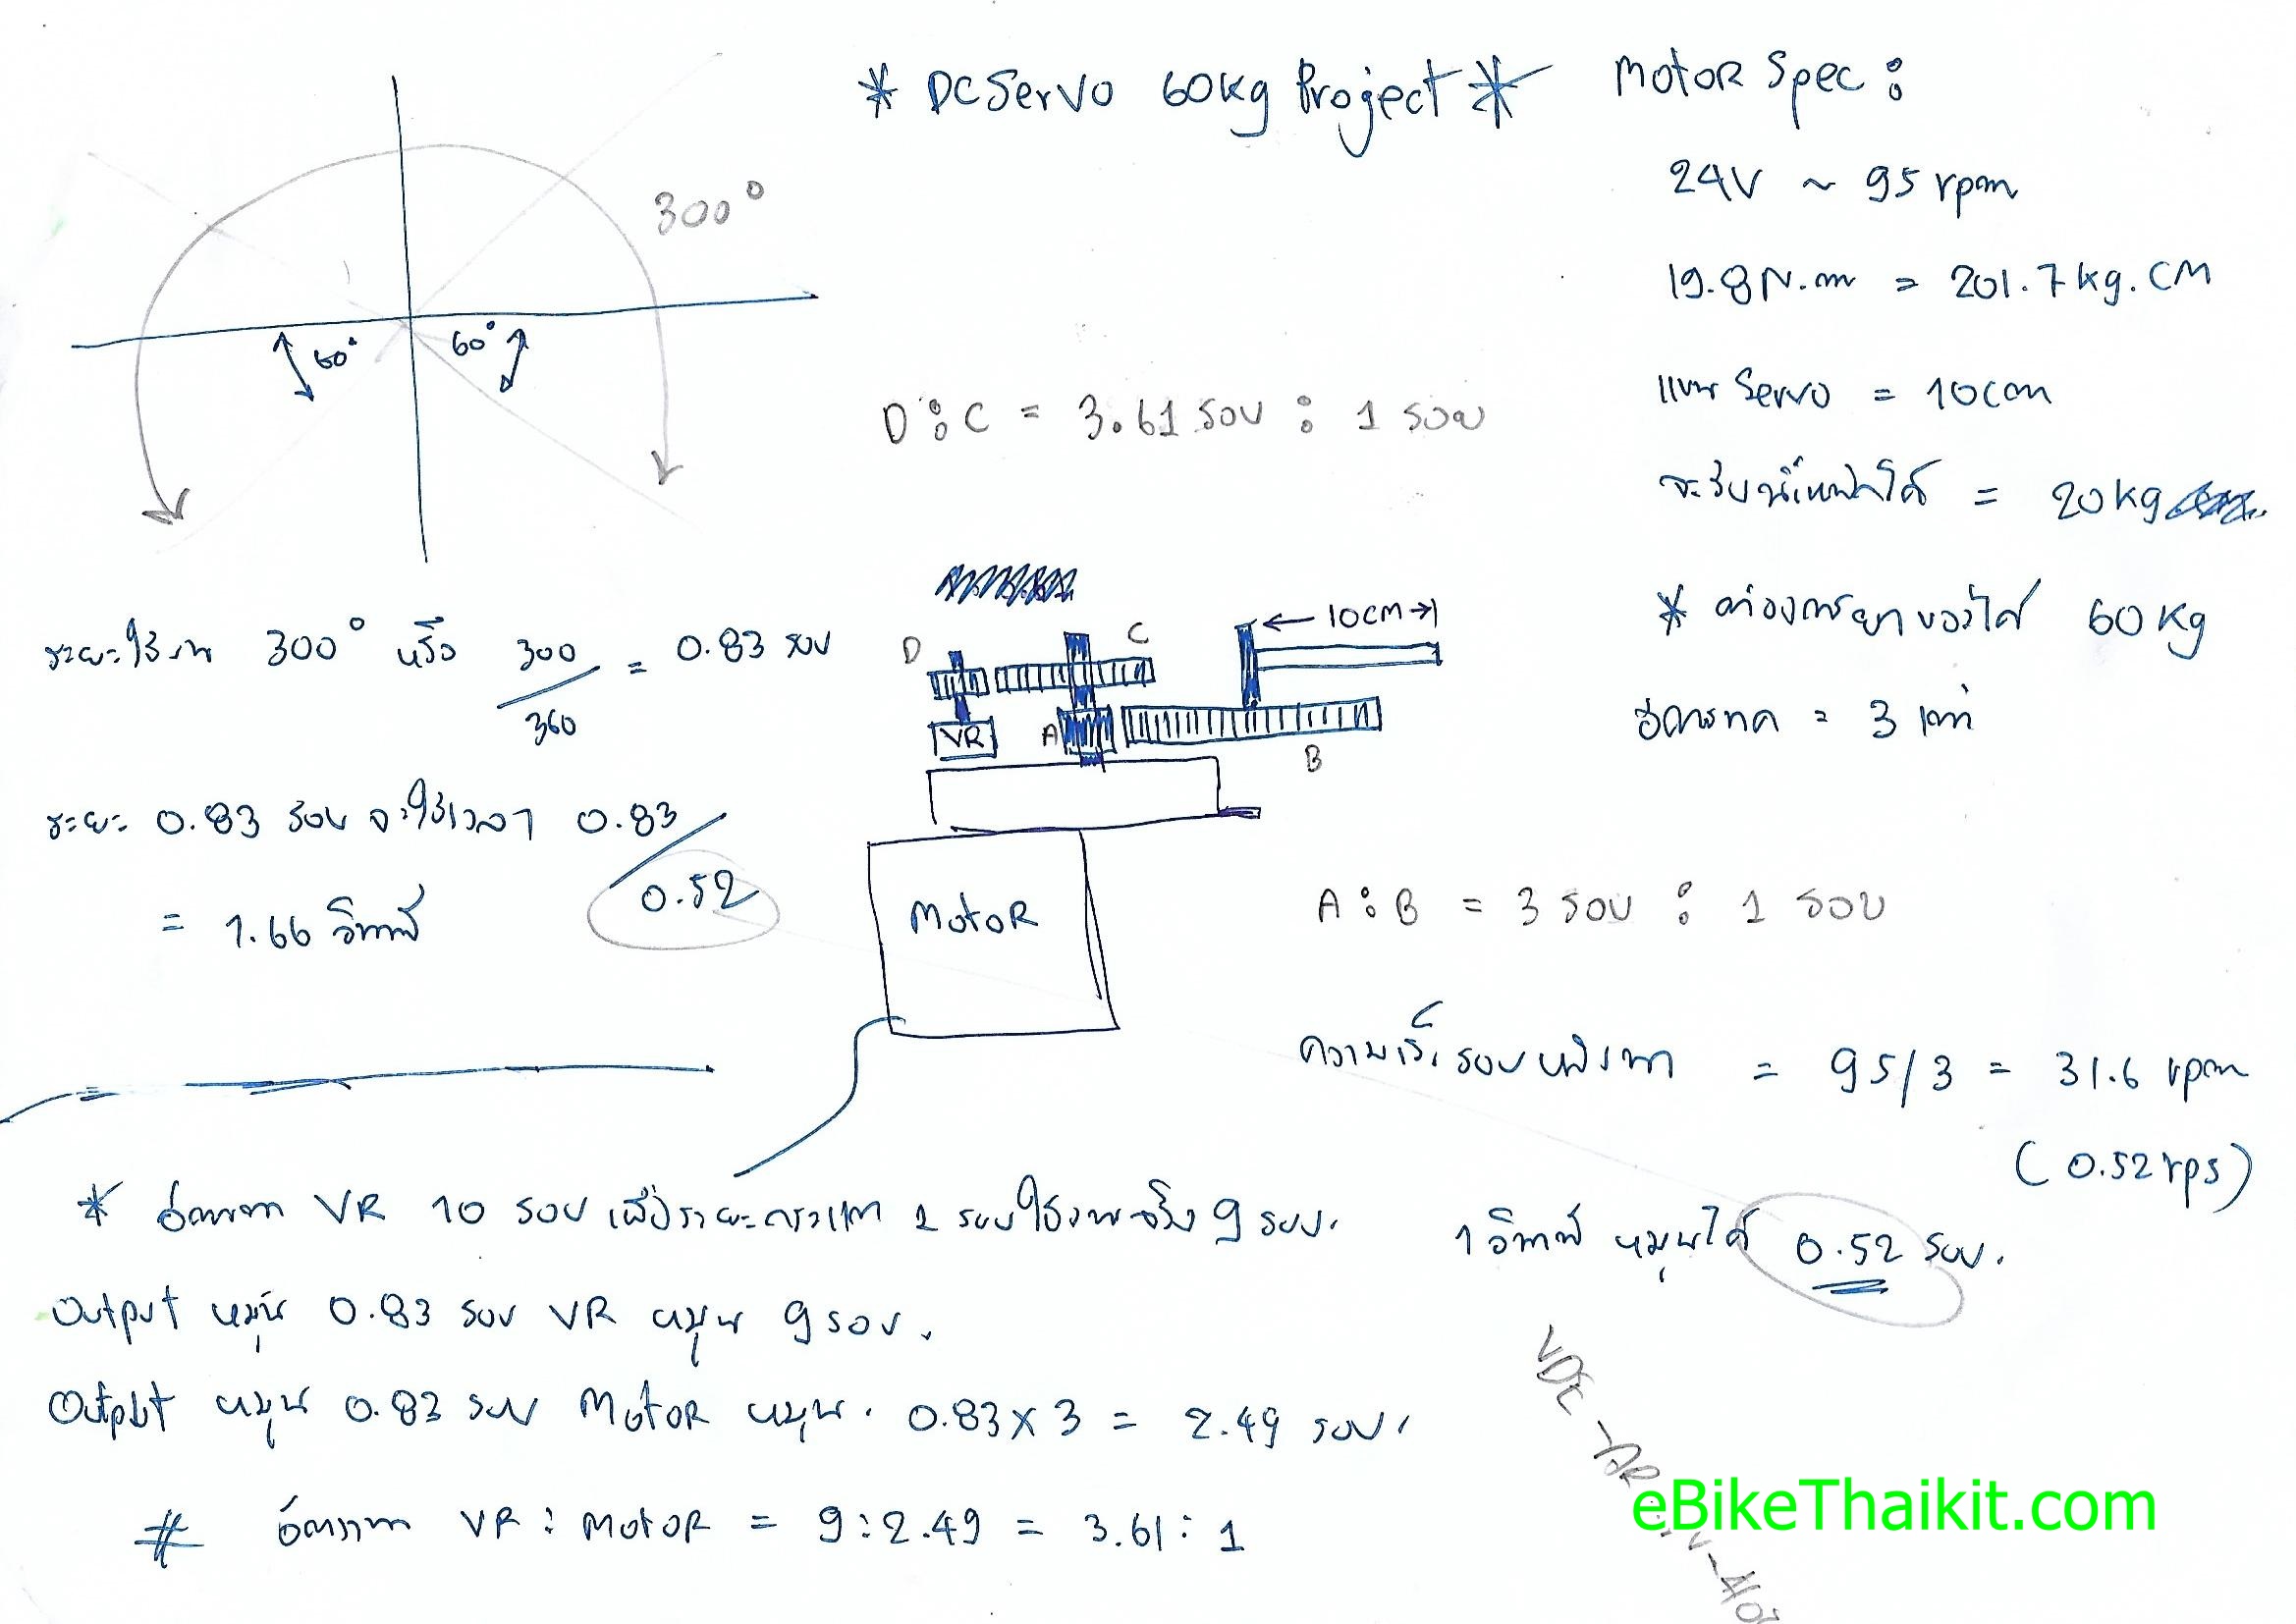 * DC Servo 60kg Project *
Motor Spec :
24V ~ 95 rpm
19.8 N.m = 201.7 kg.CM
แขน Servo = 10cm
จะรับน้ำหนักได้ = 20kg
* ต้องการยกของได้ 60 kg
อัตราทด = 3 เท่า
300°
60° 60°
D : C = 3.61 รอบ : 1 รอบ
ระยะใช้งาน 300° หรือ 300/360 = 0.83 รอบ
ระยะ 0.83 รอบ จะใช้เวลา 0.83/0.52
= 1.66 วินาที
D C
10CM
VR A
B
Motor
A : B = 3 รอบ : 1 รอบ
ความเร็วรอบหลังทด = 95/3 = 31.6 rpm
(0.52 rps)
1 วินาที หมุนได้ 0.52 รอบ.
* อัตราทด VR 10 รอบ เผื่อระยะ 1 รอบ ใช้งานจริง 9 รอบ.
Output หมุน 0.83 รอบ VR หมุน 9 รอบ.
Output หมุน 0.83 รอบ Motor หมุน. 0.83 x 3 = 2.49 รอบ.
# อัตราทด VR : Motor = 9 : 2.49 = 3.61 : 1
eBikeThaikit.com